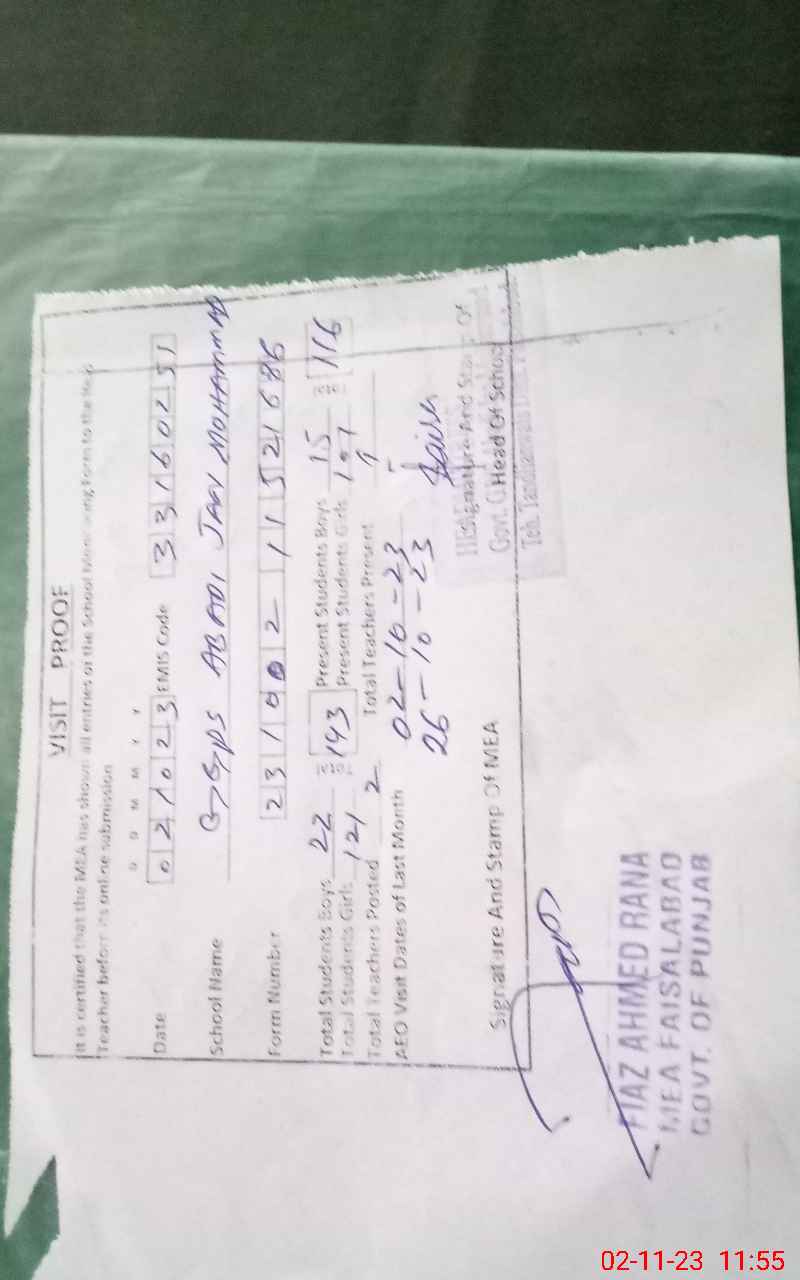 VISIT PROOF
It is certified that the MEA has shown all entries of the School Monitoring Form to the Head
Teacher before its online submission
D D M M Y Y
Date 021023 EMIS Code 33160251
School Name GGPS ABADI JAN MOHAMMAD
Form Number 231002 11521686
Total Students Boys 22 193 Present Students Boys 15 116
Total Students Girls 121 Present Students Girls 107
Total Teachers Posted 2 Total Teachers Present
AEO Visit Dates of Last Month 02-10-23
26-10-23
Signature And Stamp Of MEA Signature And Stamp Of
Head Of School
Govt.
Teh. Tandlianwala
FIAZ AHMED RANA
MEA FAISALABAD
GOVT. OF PUNJAB
02-11-23 11:55